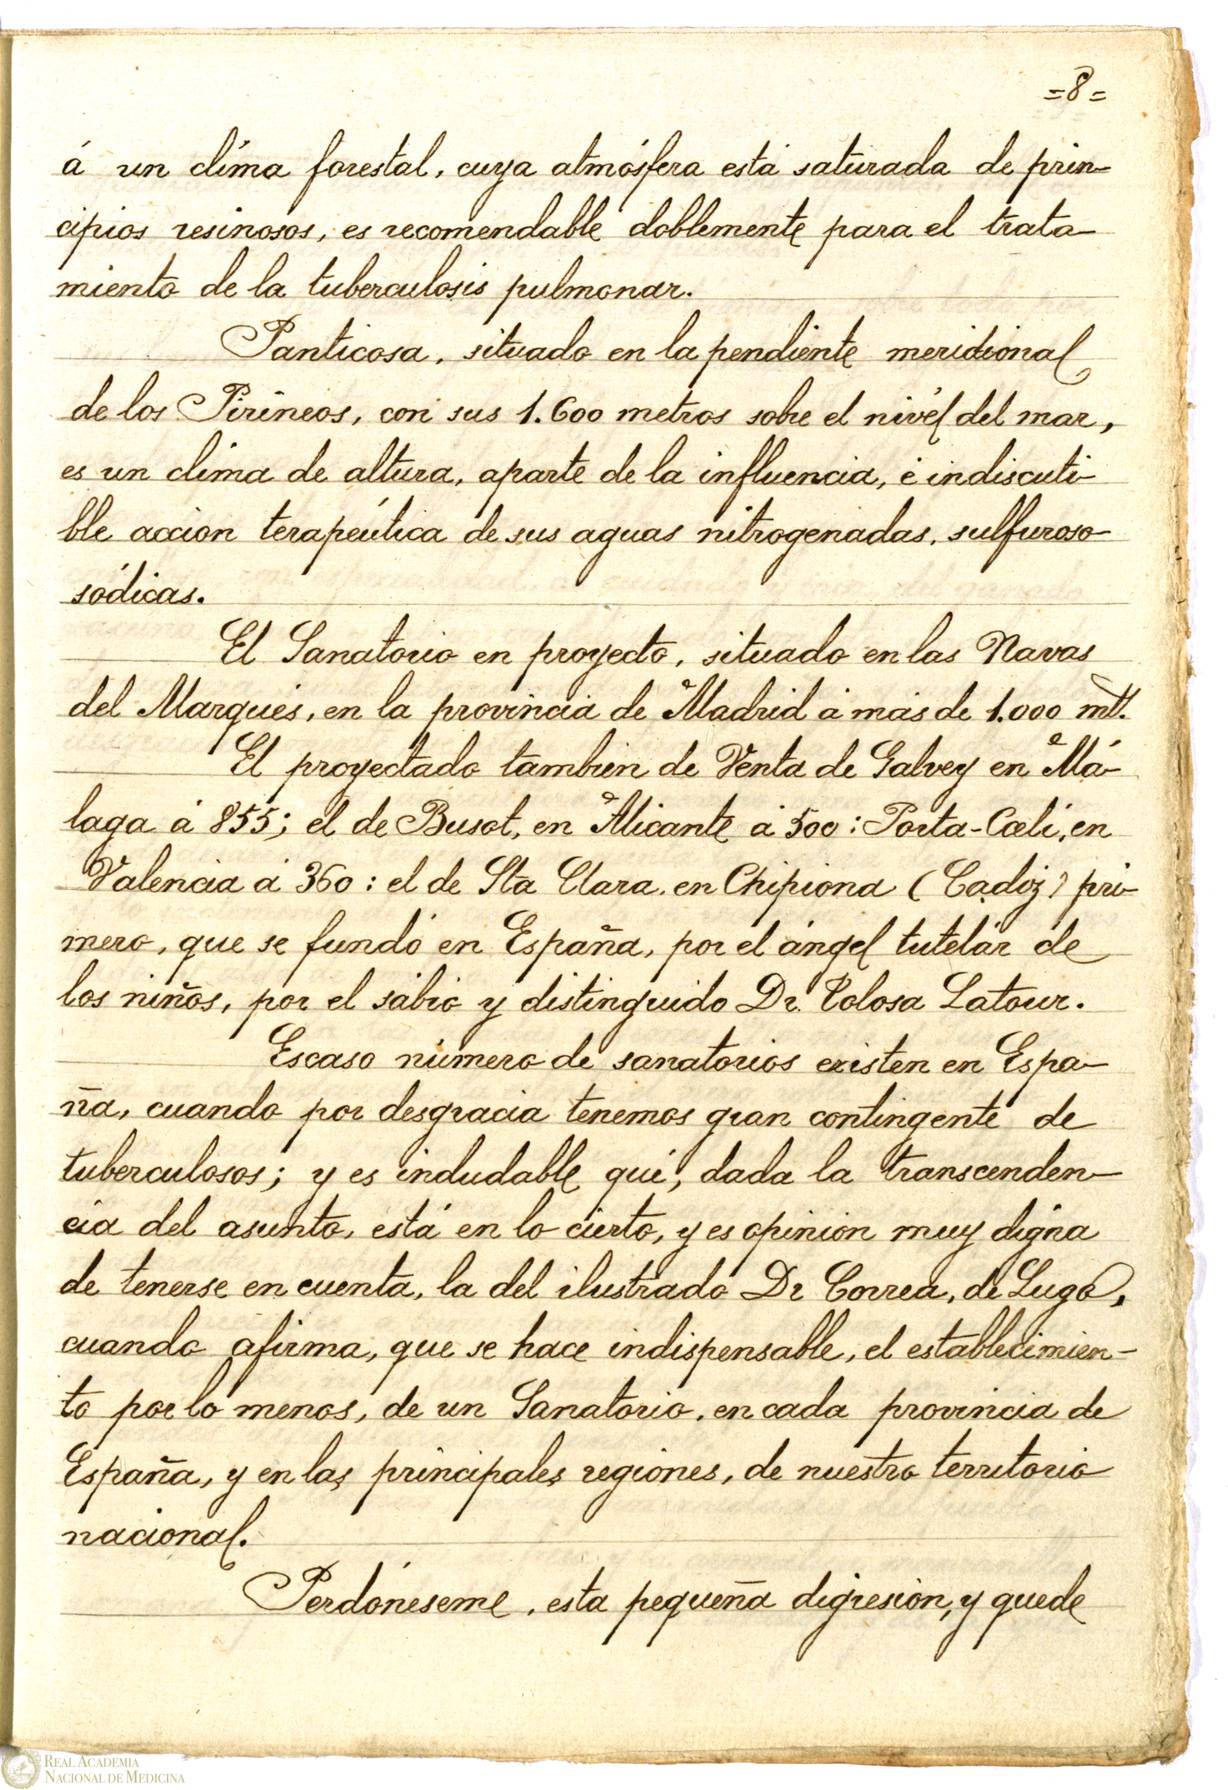 =8=
á un clíma forestal, cuya atmósfera está saturada de prin-
cipios resinosos, es recomendable doblemente para el trata-
miento de la tuberculosis pulmonar.
Panticosa, situado en la pendiente meridional
de los Pirineos, con sus 1.600 metros sobre el nivél del mar,
es un clima de altura, aparte de la influencia, é indiscuti-
ble accion terapeútica de sus aguas nitrogenadas, sulfuroso-
sódicas.
El Sanatorio en proyecto, situado en las Navas
del Marqués, en la provincia de Madrid á más de 1.000 mt.
El proyectado tambien de Venta de Galvey en Má-
laga á 855; el de Busot, en Alicante á 500: Porta-Cœli, en
Valencia á 360: el de Sta Clara, en Chipiona (Cadiz) pri-
mero, que se fundó en España, por el ángel tutelár de
los niños, por el sábio y distinguido Dr. Tolosa Latour.
Escaso número de sanatorios existen en Espa-
ña, cuando por desgracia tenemos gran contingente de
tuberculosos; y es indudable que, dada la transcenden-
cia del asunto, está en lo cierto, y es opinion muy digna
de tenerse en cuenta, la del ilustrado Dr Correa, de Lugo,
cuando afirma, que se hace indispensable, el establecimien-
to por lo menos, de un Sanatorio, en cada provincia de
España, y en las principales regiones, de nuestro territorio
nacional.
Perdóneseme, esta pequeña digresion, y quede
REAL ACADEMIA
NACIONAL DE MEDICINA